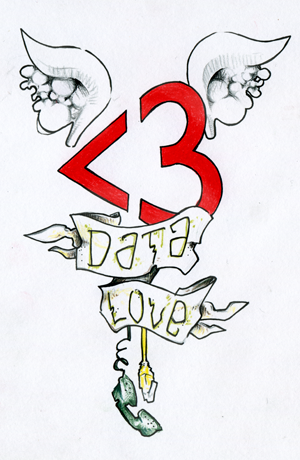 <3
Data
Love